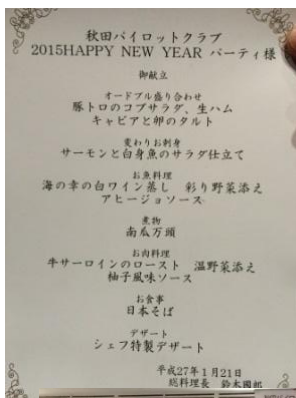 秋田パイロットクラブ
2015HAPPY NEW YEAR パーティ様
御献立
オードブル盛り合わせ
豚トロのコブサラダ、生ハム
キャビアと卵のタルト
変わりお刺身
サーモンと白身魚のサラダ仕立て
お魚料理
海の幸の白ワイン蒸し　彩り野菜添え
アヒージョソース
煮物
南瓜万頭
お肉料理
牛サーロインのロースト　温野菜添え
柚子風味ソース
お食事
日本そば
デザート
シェフ特製デザート
平成27年1月21日
総料理長　鈴木國郎